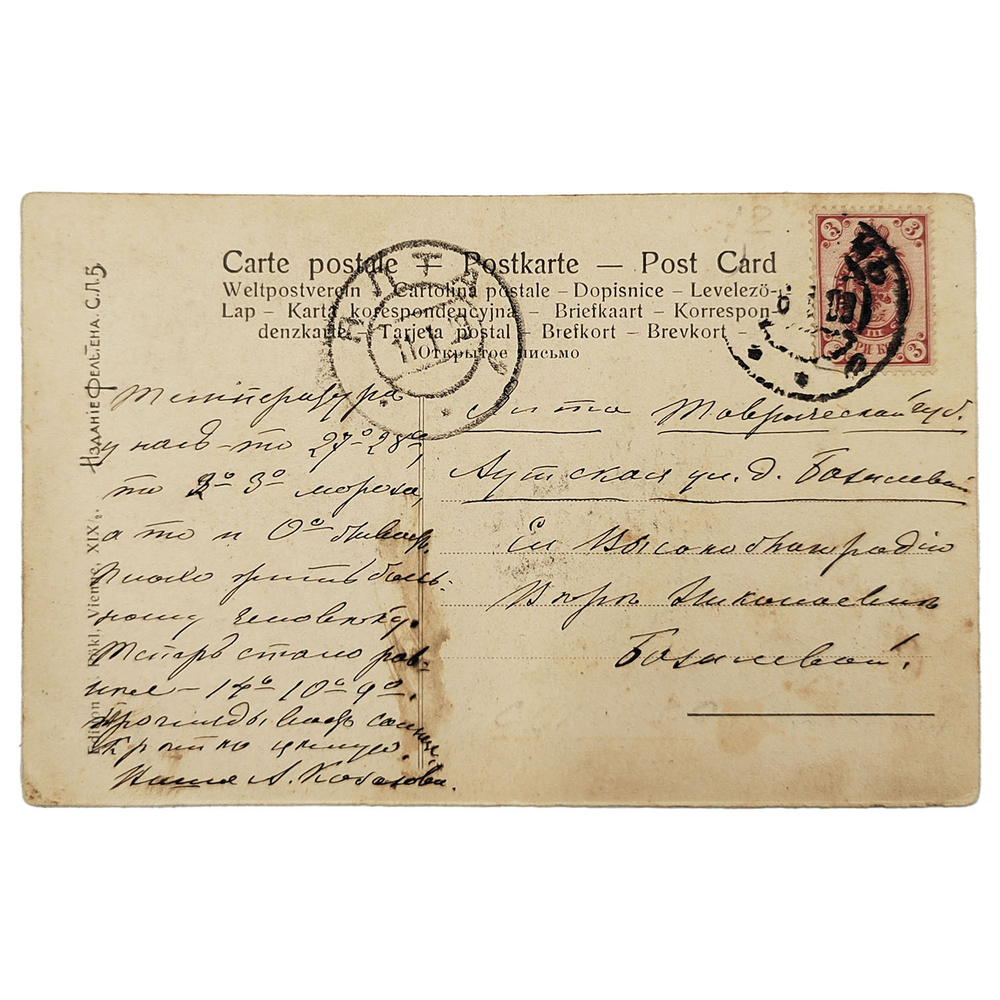 Carte postale — Postkarte — Post Card
Weltpostverein – Cartolina postale – Dopisnice – Levelező-
Lap – Karta korespondencyjna – Briefkaart – Korrespon-
denzkarte – Tarjeta postal – Brefkort – Brevkort –
Открытое письмо
ЯЛТА
3 3
3 3
Изданіе Фельтена. С.П.Б.
Vienne, XIX/2.
Температура
у насъ – то 27° 28°,
то 2° 3° мороза,
а то и 0° бываетъ.
Плохо жить боль-
ному человѣку.
Теперь стало ров-
нѣе – 14° 10° 9°.
солнце.
Крѣпко цѣлую.
Ялта Таврической губ.
Аутская ул. д.
Ея Высокоблагородію
Вѣрѣ Николаевнѣ